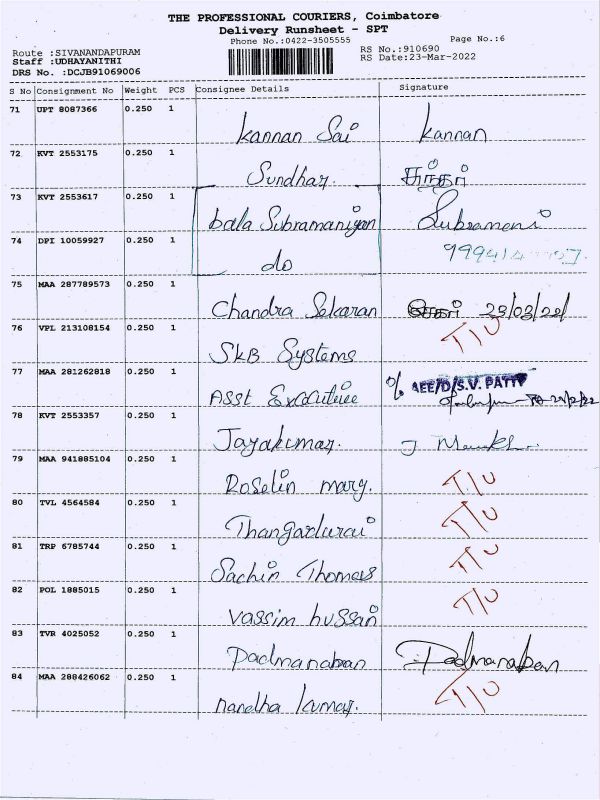 THE PROFESSIONAL COURIERS, Coimbatore
Delivery Runsheet - SPT
Phone No.:0422-3505555 Page No.:6
Route :SIVANANDAPURAM RS No.:910690
Staff :UDHAYANITHI RS Date:23-Mar-2022
DRS No. :DCJB91069006
S No Consignment No Weight PCS Consignee Details Signature
71 UPT 8087366 0.250 1
Kannan Sai Kannan
72 KVT 2553175 0.250 1
Sundhar.
73 KVT 2553617 0.250 1
bala Subramaniyan Subramani
74 DPI 10059927 0.250 1
do
75 MAA 287789573 0.250 1
Chandra Sekaran 23/03/22
76 VPL 213108154 0.250 1 T/U
SKB Systems
77 MAA 281262818 0.250 1 AEE/D/S.V. PATTY
Asst Executive
78 KVT 2553357 0.250 1
Jayakumar.
79 MAA 941885104 0.250 1 T/U
Roselin mary.
80 TVL 4564584 0.250 1 T/U
Thangadurai
81 TRP 6785744 0.250 1 T/U
Sachin Thomas
82 POL 1885015 0.250 1 T/U
Vassim hussain
83 TVR 4025052 0.250 1
Padmanaban Padmanaban
84 MAA 288426062 0.250 1 T/U
nandha kumar.